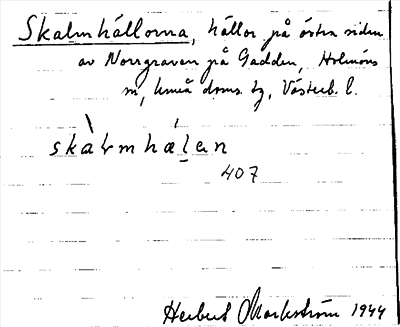 Skalmhällorna, hällor på östra sidan
av Norrgraven på Gadden, Holmöns
sn, Umeå doms. tg, Västerb. l.
skàlmhǽlạn
407
Herbert Markström 1944